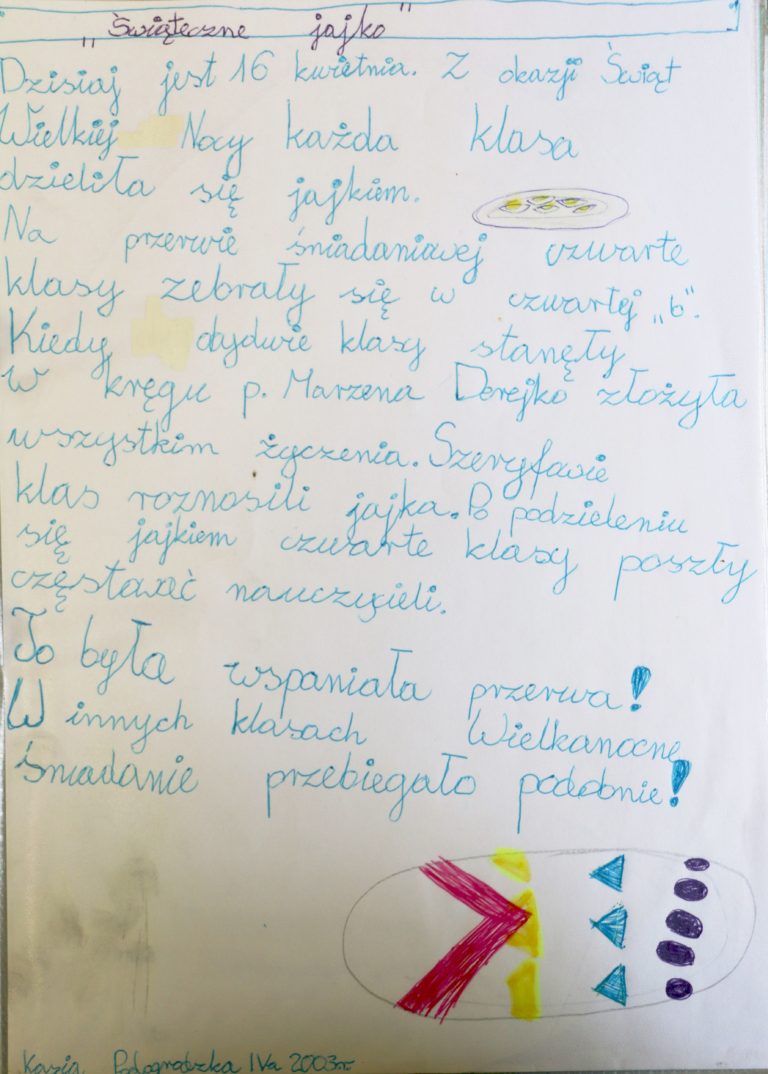 „Świąteczne jajko”
Dzisiaj jest 16 kwietnia. Z okazji Świąt
Wielkiej Nocy każda klasa
dzieliła się jajkiem.
Na przerwie śniadaniowej czwarte
klasy zebrały się w czwartej „b”.
Kiedy obydwie klasy stanęły
w kręgu p. Marzena Derejko złożyła
wszystkim życzenia. Szeryfowie
klas roznosili jajka. Po podzieleniu
się jajkiem czwarte klasy poszły
częstować nauczycieli.
To była wspaniała przerwa!
W innych klasach Wielkanocne
śniadanie przebiegało podobnie!
Kasia IVa 2003r.